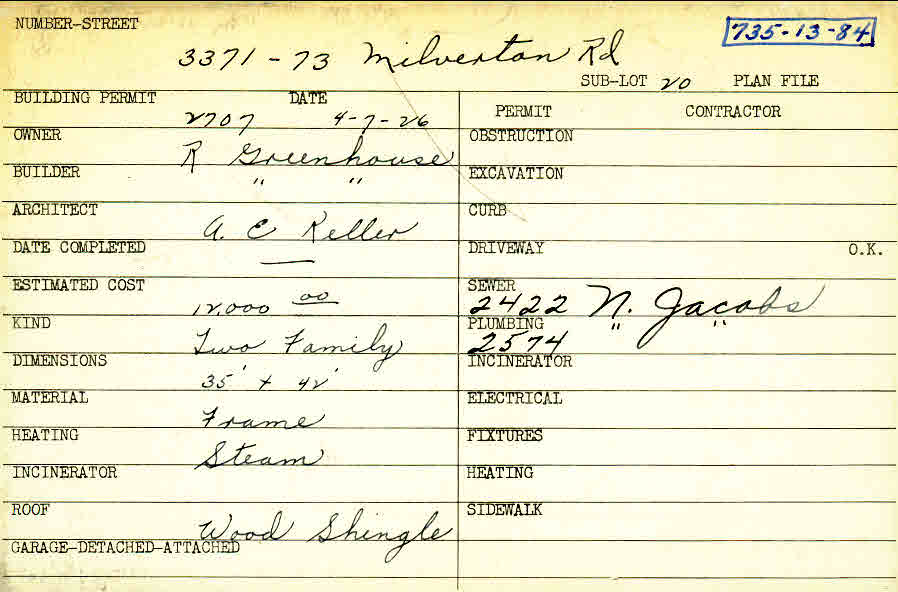 NUMBER-STREET
735-13-84
3371-73 Milverton Rd
SUB-LOT 20 PLAN FILE
BUILDING PERMIT DATE
2707 4-7-26
PERMIT CONTRACTOR
OWNER
R Greenhouse
OBSTRUCTION
BUILDER
" "
EXCAVATION
ARCHITECT
A. E Keller
CURB
DATE COMPLETED
—
DRIVEWAY O.K.
ESTIMATED COST
12,000 00
SEWER
2422 N. Jacobs
KIND
Two Family
PLUMBING
2574 " "
DIMENSIONS
35' + 42'
INCINERATOR
MATERIAL
Frame
ELECTRICAL
HEATING
Steam
FIXTURES
INCINERATOR
HEATING
ROOF
Wood Shingle
SIDEWALK
GARAGE-DETACHED-ATTACHED